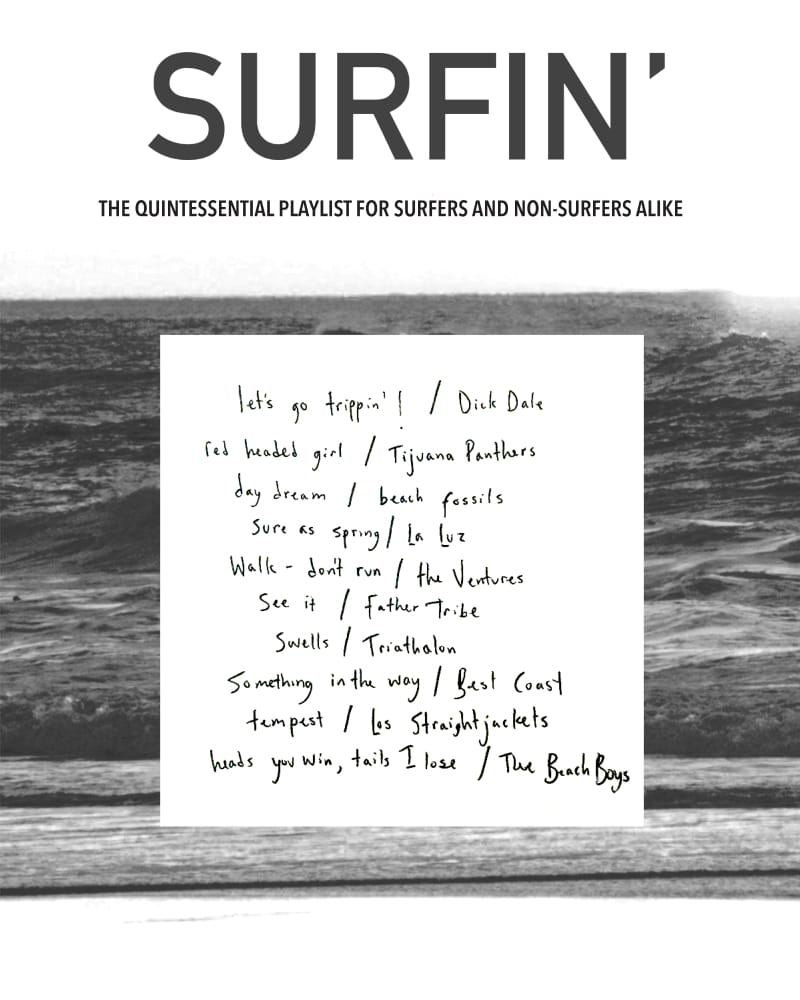 SURFIN'
THE QUINTESSENTIAL PLAYLIST FOR SURFERS AND NON-SURFERS ALIKE
let's go trippin'! / Dick Dale
red headed girl / Tijuana Panthers
day dream / beach fossils
Sure as spring / La Luz
Walk - don't run / the Ventures
See it / Father Tribe
Swells / Triathalon
Something in the way / Best Coast
tempest / Los Straightjackets
heads you win, tails I lose / The Beach Boys